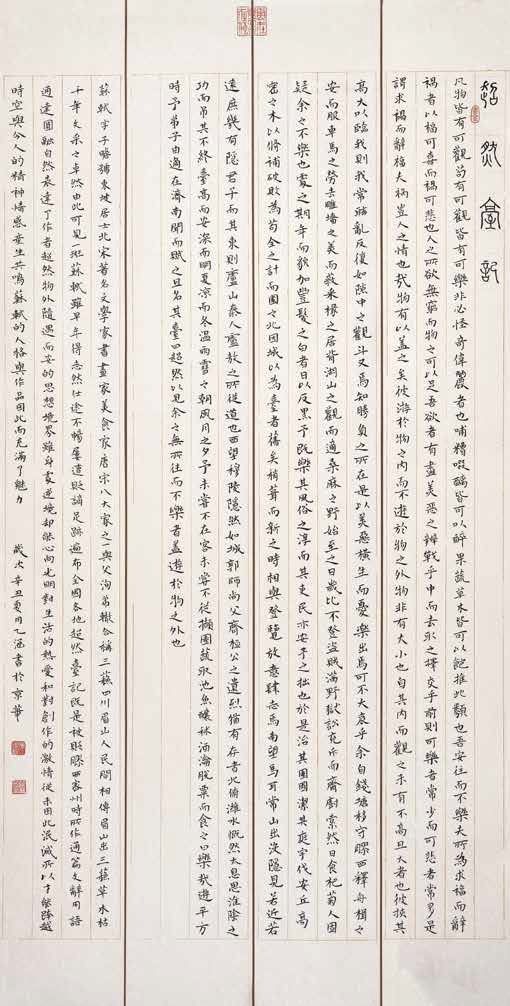 超然臺記
凡物皆有可觀苟有可觀皆有可樂非必怪奇偉麗者也哺糟啜醨皆可以醉果蔬草木皆可以飽推此類也吾安往而不樂夫所為求福而辭
禍者以福可喜而禍可悲也人之所欲無窮而物之可以足吾欲者有盡美惡之辨戰乎中而去取之擇交乎前則可樂者常少而可悲者常多是
謂求禍而辭福夫禍豈人之情也哉物有以蓋之矣彼游於物之內而不遊於物之外物非有大小也自其內而觀之未有不高且大者也彼挾其
高大以臨我則我常眩亂反復如隙中之觀斗又焉知勝負之所在是以美惡橫生而憂樂出焉可不大哀乎余自錢塘移守膠西釋舟楫之
安而服車馬之勞去雕墻之美而蔽采椽之居背湖山之觀而適桑麻之野始至之日歲比不登盜賊滿野獄訟充斥而齋廚索然日食杞菊人固
疑余之不樂也處之期年而貌加豐髮之白者日以反黑予既樂其風俗之淳而其吏民亦安予之拙也於是治其園圃潔其庭宇伐安丘高
密之木以脩補破敗為苟全之計而園之北因城以為臺者舊矣稍葺而新之時相與登覽放意肆志焉南望馬耳常山出沒隱見若近若
遠庶幾有隱君子乎而其東則廬山秦人盧敖之所從遁也西望穆陵隱然如城郭師尚父齊桓公之遺烈猶有存者北俯濰水慨然太息思淮陰之
功而弔其不終臺高而安深而明夏涼而冬溫雨雪之朝風月之夕予未嘗不在客未嘗不從擷園蔬取池魚釀秫酒瀹脫粟而食之曰樂哉遊乎方
時予弟子由適在濟南聞而賦之且名其臺曰超然以見余之無所往而不樂者蓋遊於物之外也
蘇軾字子瞻號東坡居士北宋著名文學家書畫家美食家唐宋八大家之一與父洵弟轍合稱三蘇四川眉山人民間相傳眉山出三蘇草木枯
千年文采之卓然由此可見一斑蘇軾雖早年得志然仕途不暢屢遭貶謫足跡遍布全國各地超然臺記既是被貶膠西密州時所作通篇文辭用語
通達圓融自然表達了作者超然物外隨遇而安的思想境界雖身處逆境卻能心向光明對生活的熱愛和對創作的激情從未因此泯滅所以才能跨越
時空與今人的精神情感產生共鳴蘇軾的人格與作品因此而充滿了魅力
歲次辛丑夏月乙涵書於京華